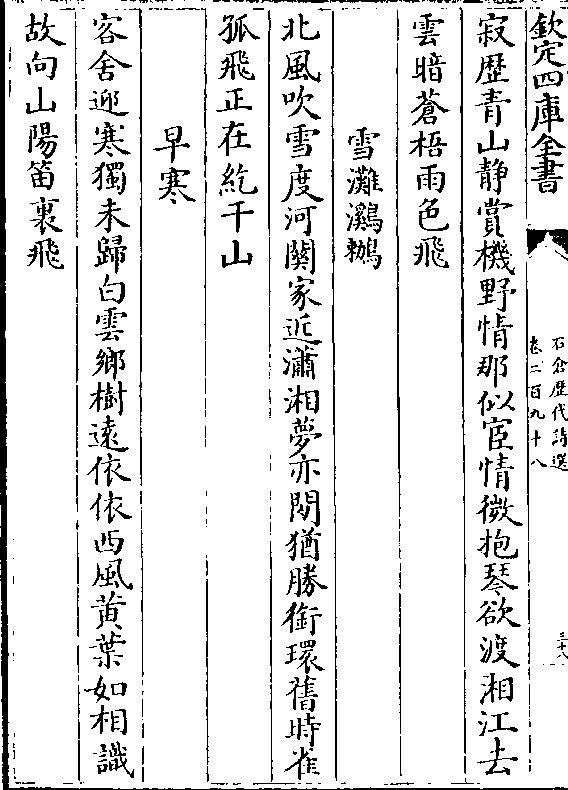 欽定四庫全書
石倉歷代詩選
卷二百九十八
三十八
寂歷青山静賞機野情那似宦情微抱琴欲渡湘江去
雲暗蒼梧雨色飛
雪灘鸂鶒
北風吹雪度河關家近瀟湘夢亦閒猶勝銜環舊時雀
孤飛正在紇干山
早寒
客舍迎寒獨未歸白雲鄉樹遠依依西風黄葉如相識
故向山陽笛裏飛